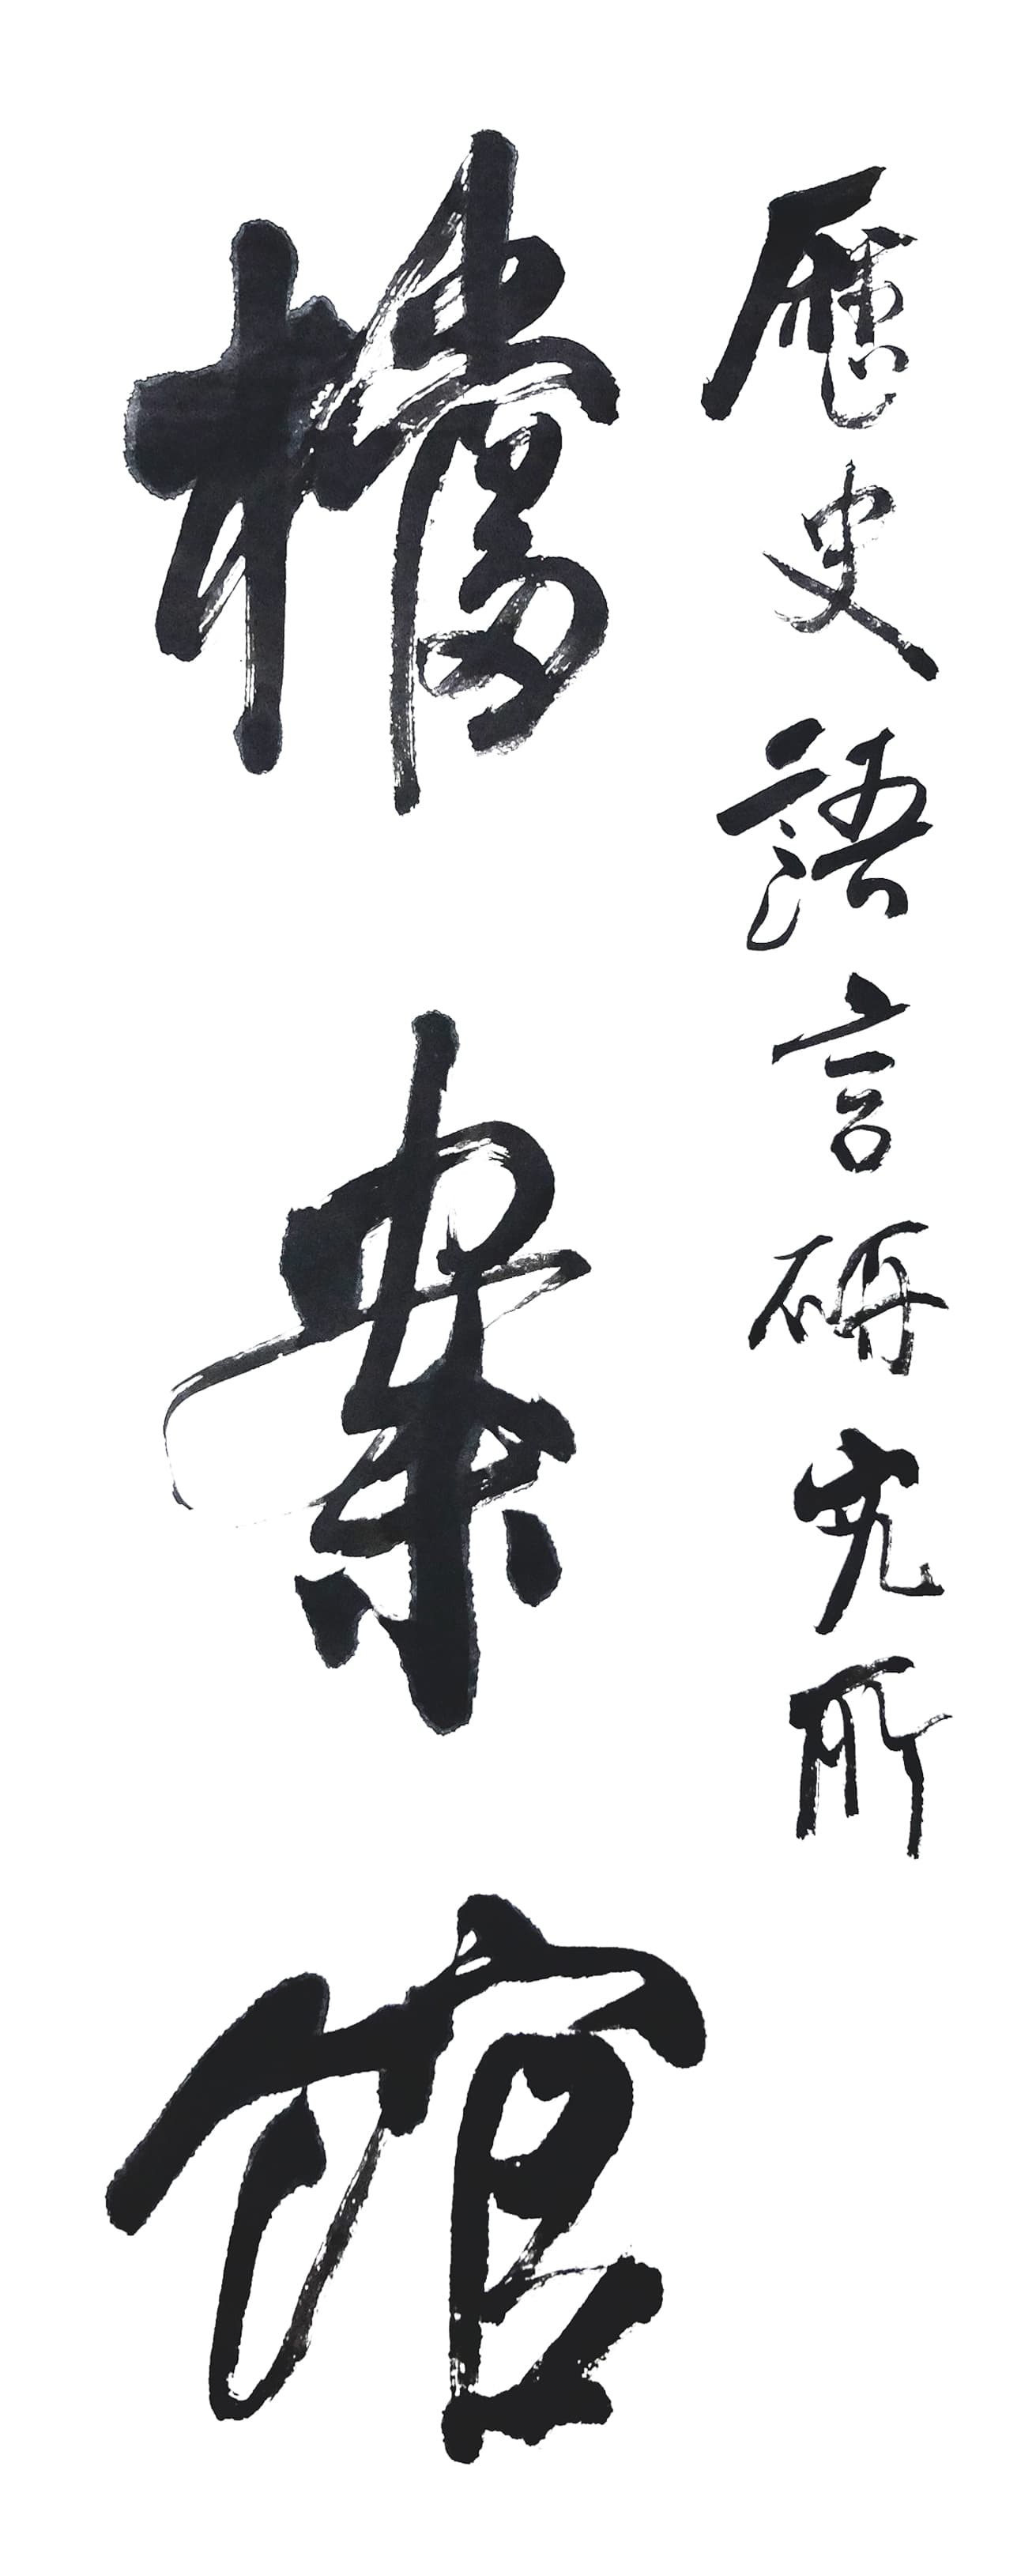 歷史語言研究所
檔案館